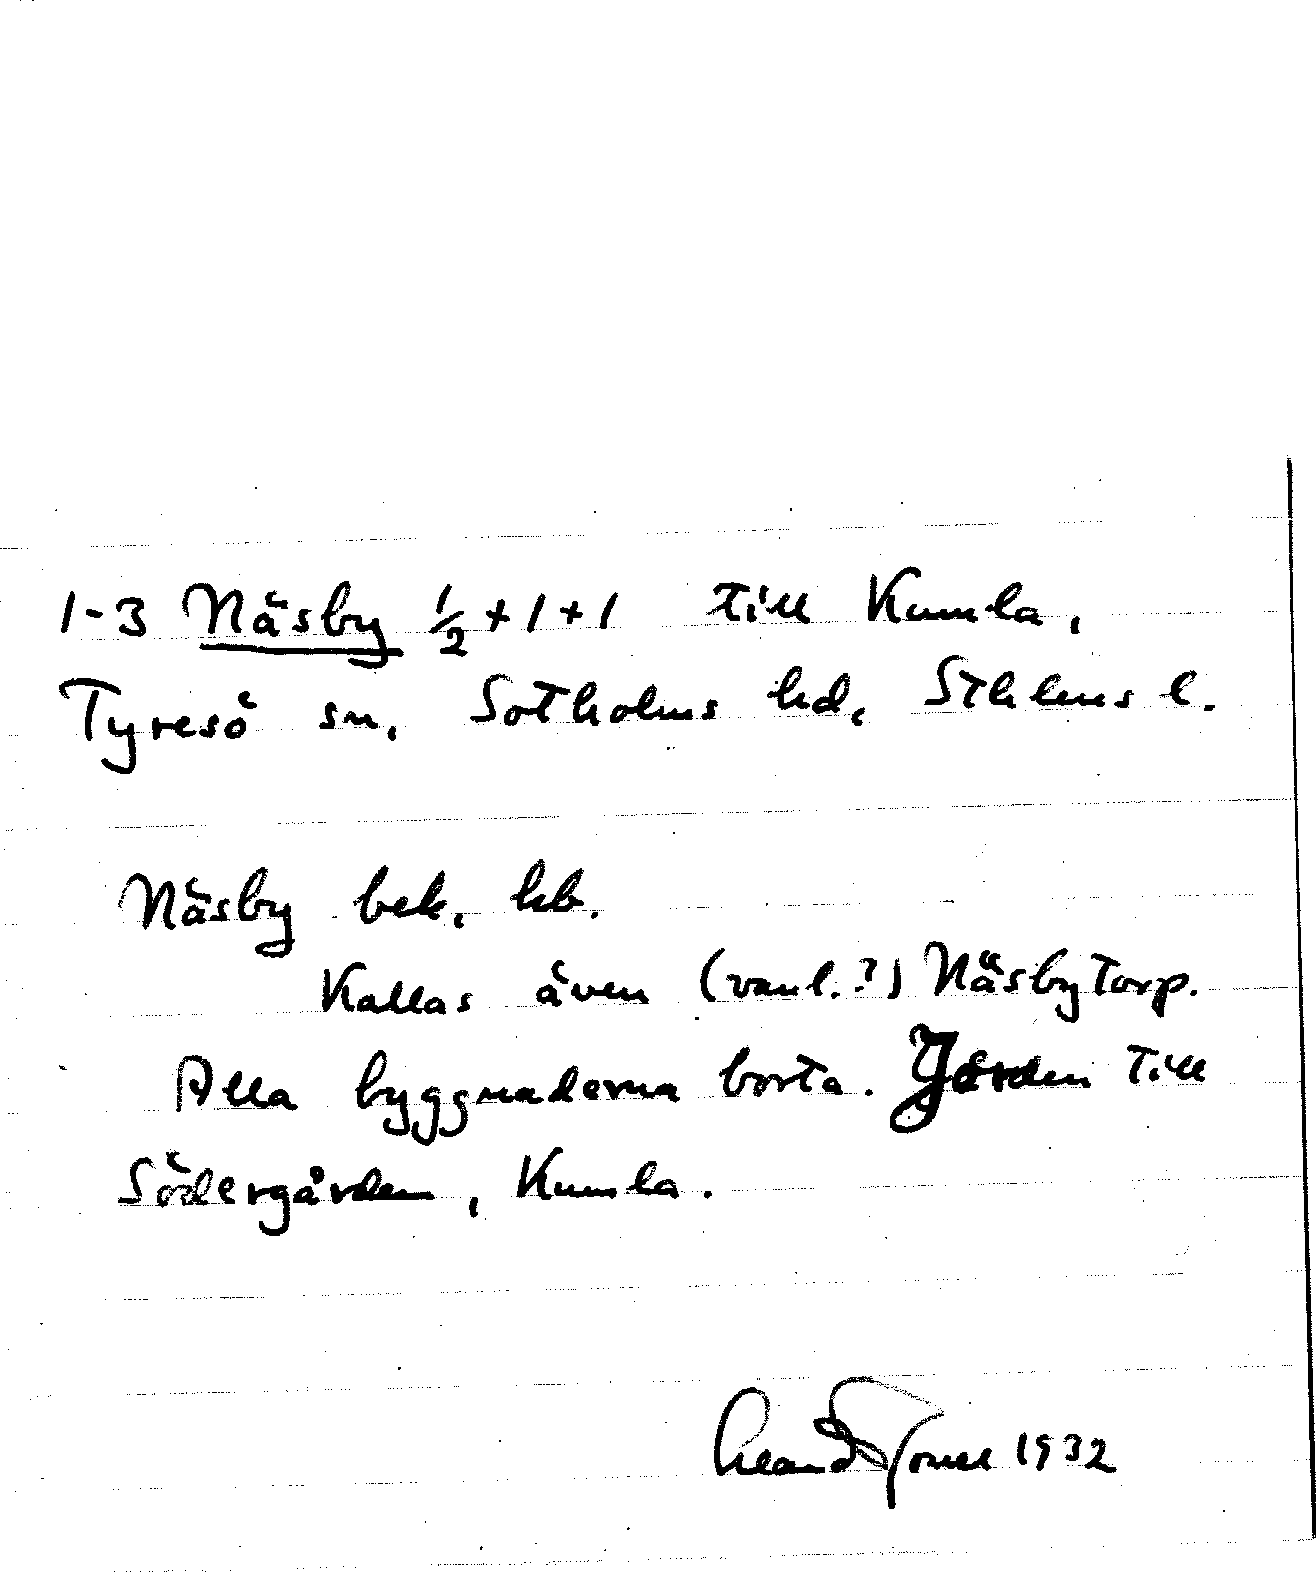 1-3 Näsby ½+1+1 till Kumla,
Tyresö sn, Sotholms hd, Sthlms l.
Näsby bek. hb.
Kallas även (vanl.?) Näsbytorp.
Alla byggnaderna borta. Jorden till
Södergården, Kumla.
1932